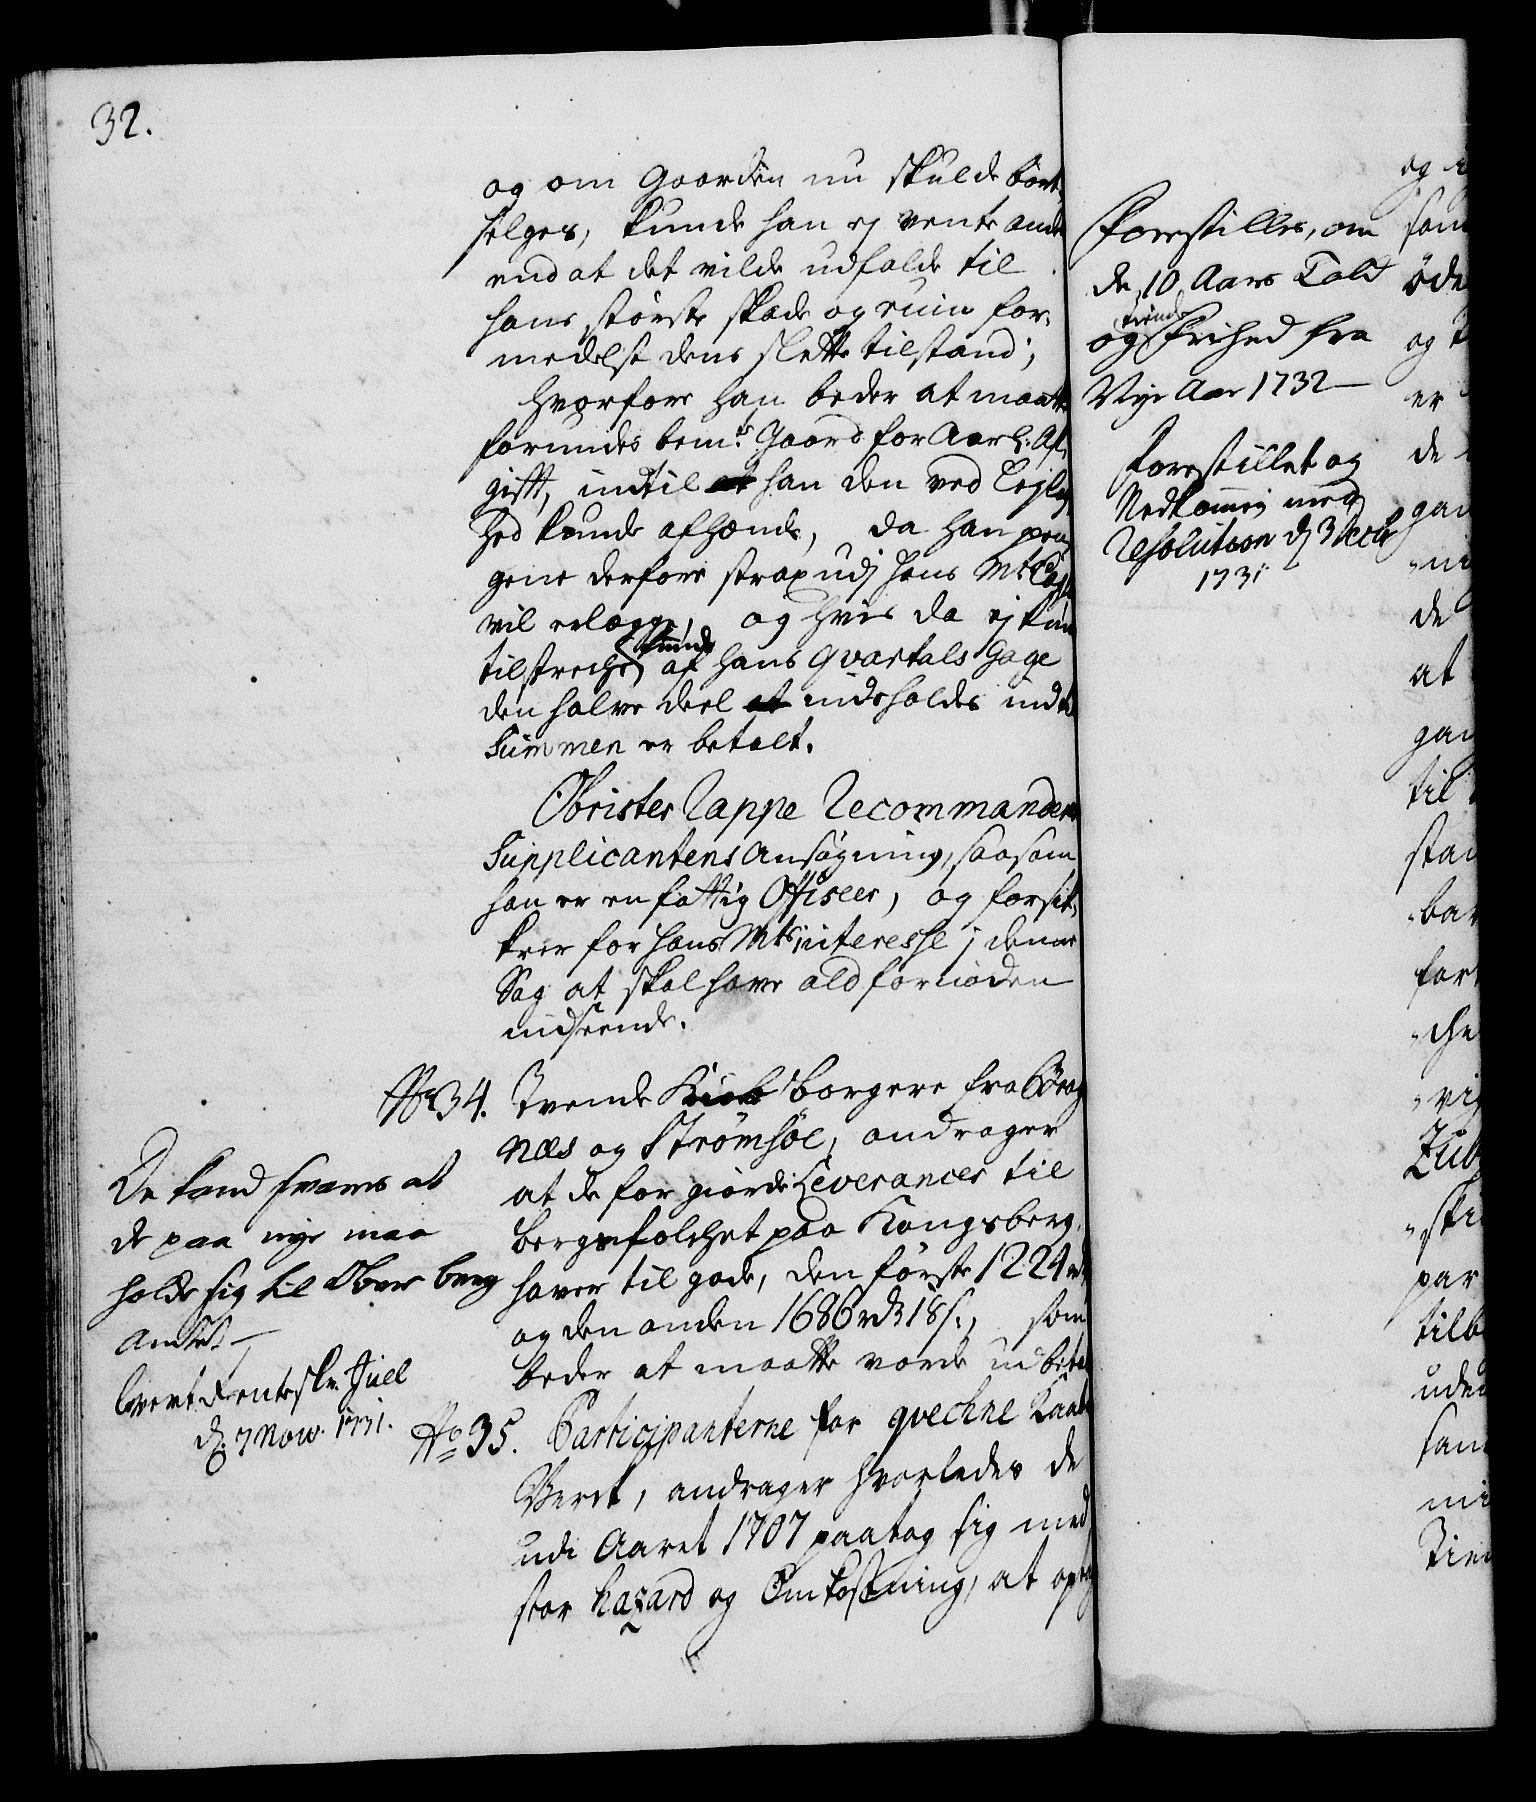 32.
og om Gaarden nu skulde bort-
selges, kunde han ej vente andet
end at det vilde udfalde til
hans største skade og ruin for-
medelst dens slette tilstand;
hvorfore han beder at maatte
forundes bemte Gaard for Aarl: Af-
gifft, indtil at han den ved Lejlig-
hed kunde afhænde, da han pen-
gene derfore strax udj Hans Mts Casse
vil erlægge, og hvis da ej kunde
tilstreche, kunde af hans qvartals Gage
den halve deel at indeholdes indtil
Summen er betalt.
Obrister Rappe Recommanderer
Supplicantens Ansøgning, saasom
han er en fattig Officeer, og forsik-
krer for Hans Mts interesse j denne
Sag at skal have ald fornøden
indseende.
No 34. Tvende Kiøb borgere fra Brag-
næs og Strømsøe, andrager
at de for giorde Leverancer til
bergsfolchet paa Kongsberg,
haver til gode, den første 1224 rd
og den anden 1686 rdr 18 s., som
beder at maatte vorde udbetalt
De kand svares at
de paa nye maa
holde sig til Ober berg
Amtet
levert Renteskr. Juel
d. 7 Nov. 1731.
No 35. Participanterne for qvechne Kaaber
Verck, andrager hvorledes de
udi Aaret 1707 paatog sig med
stor hazard og Omkostning, at optage
Forestilles, om
de 10 Aars Told
og Tiende Frihed fra
Nye Aar 1732
Forestillet og
Nedkommen med
Resolution d. 3 Decbr
1731
og
som
øde
og T
er
de
gan
ni
de
at
gan
til
stan
bar
for
che
vi
Zub
ski
par
tilb
uden
sam
mi
Tien